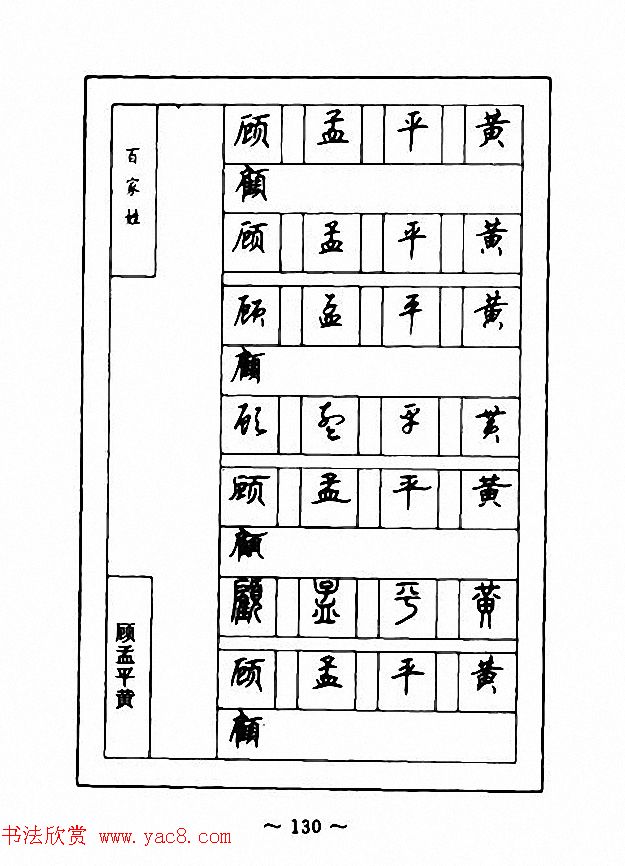 百家姓
顾孟平黄
顾 孟 平 黄
顧
顾 孟 平 黄
顾 孟 平 黄
顧
顾 孟 平 黄
顾 孟 平 黄
顧
顧 孟 平 黄
顾 孟 平 黄
顧
～ 130 ～
书法欣赏 www.yac8.com